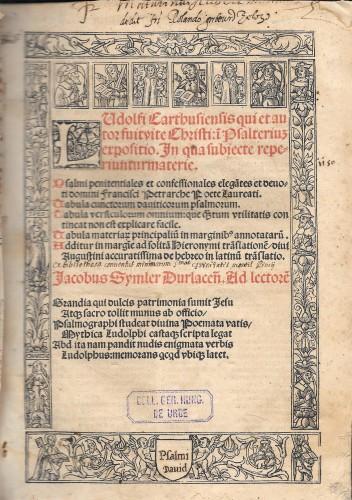 LUdolfi Carthusiensis qui et au
tor fuit vite Christi: ĩ Psalteriuz
expositio. In qua subiecte repe
riuntur materie.
Psalmi penitentiales et confessionales elegātes et deuo
ti domini Francisci Petrarche Poete Laureati.
Tabula cunctorum dauiticorum psalmorum.
Tabula versiculorum omnium: que q̄tum vtilitatis con
tineat non est explicare facile.
Tabula materiaꝝ principaliū in marginibꝰ annotataꝝ.
Additur in margīe ad solitā Hieronymi trāslationē: diui
Augustini accuratissima de hebreo in latinū trāslatio.
Jacobus Symler Durlaceñ. Ad lectorē
Grandia qui dulcis patrimonia sumit Jesu
Atqȝ sacro tollit munus ab officio/
Psalmographi studeat diuina Poemata vatis/
Mythica Ludolphi castaqȝ scripta legat
Abd ita nam pandit nudis enigmata verbis
Ludolphus: memorans qcqd vbiqȝ latet.
COLL. GER. HUNG.
DE URBE
Psalmi
Dauid